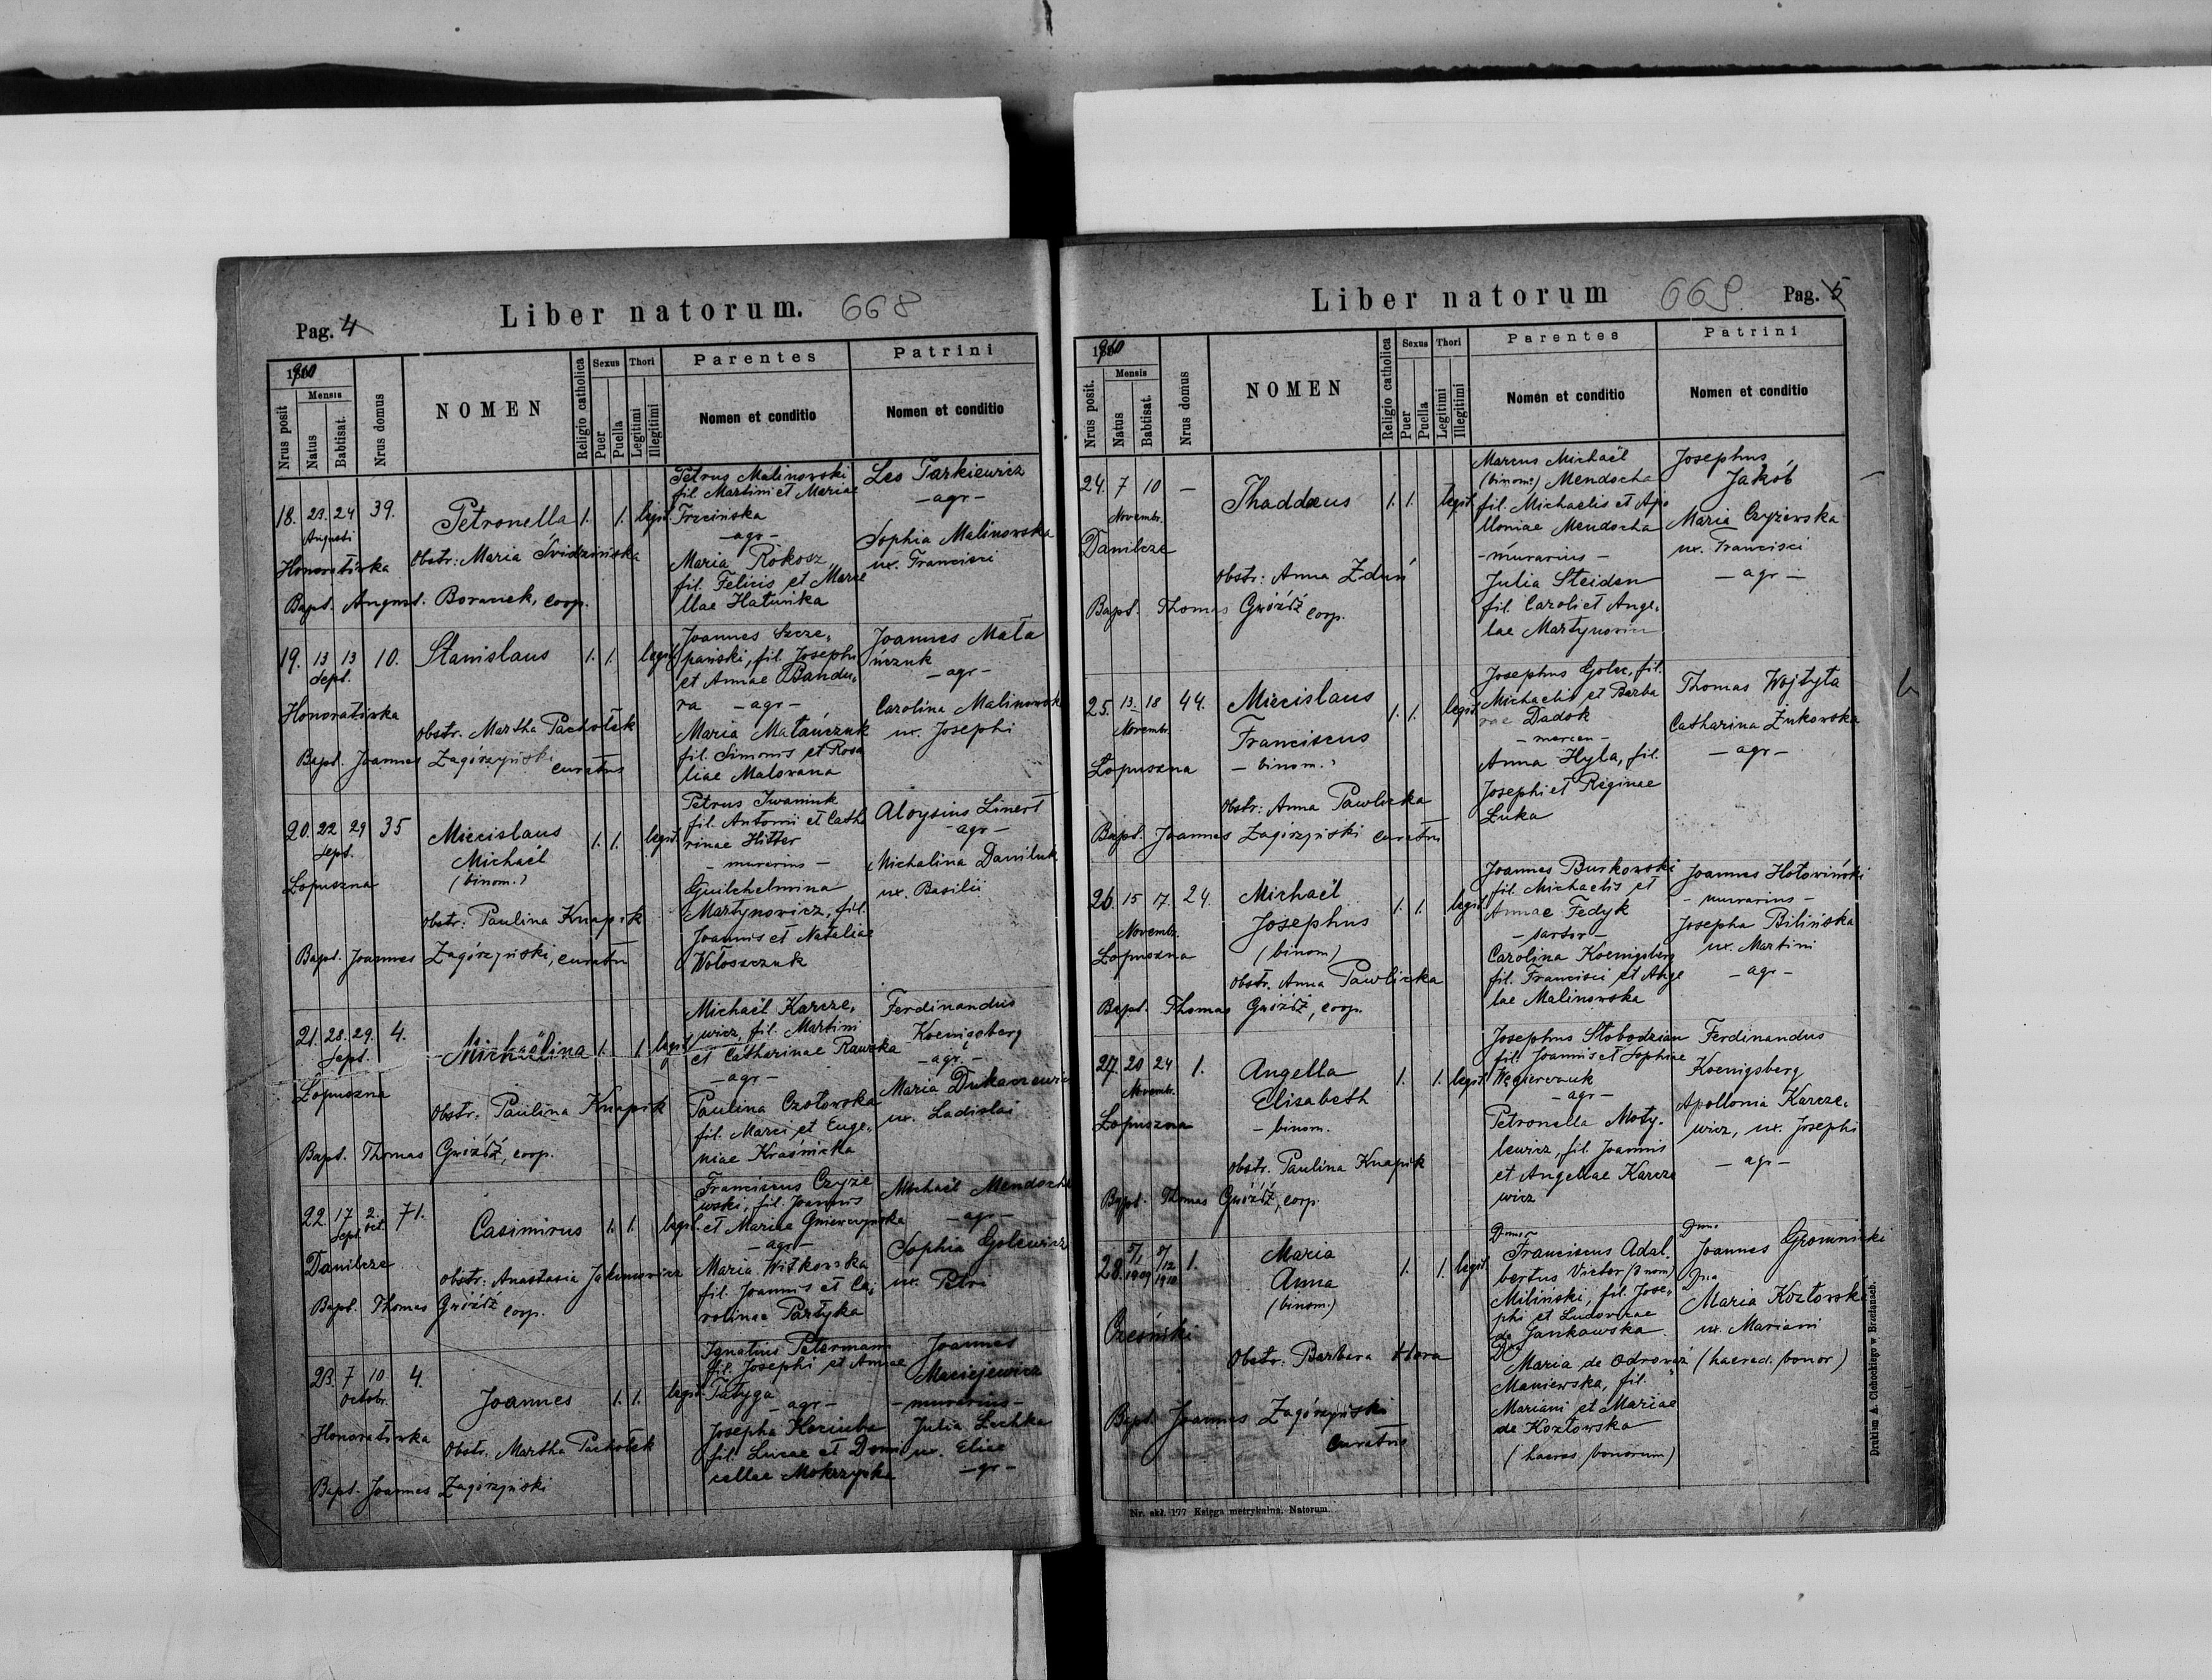 Pag. 4
Liber natorum. 668
1910
Nrus posit
Mensis
Natus
Babtisat.
Nrus domus
NOMEN
Religio catholica
Sexus
Puer
Puella
Thori
Legitimi
Illegitimi
Parentes
Nomen et conditio
Patrini
Nomen et conditio
18. 23. 24 39.
Augusti
Honoratówka
Petronella 1. 1. legit.
Obstr: Maria Świdzińska
Bapt. August. Boranek, coop.
Petrus Malinowski
fil. Martini et Mariae
Trzcińska
- agr -
Maria Rokosz,
fil. Felicis et Marce
llae Hatunka
Leo Tarkiewicz
- agr -
Sophia Malinowska
ux. Francisci
19. 13 13 10.
Sept.
Honoratówka
Stanislaus 1. 1. legit.
obstr. Martha Pachołek
Bapt. Joannes Zagórzyński
curatus
Joannes Szcze-
pański, fil. Josephi
et Annae Bandu-
ra - agr -
Maria Matańczuk
fil. Simonis et Rosa
liae Malowana
Joannes Mata
ńczuk
- agr -
Carolina Malinowska
ux. Josephi
20. 22 29 35
Sept.
Łopuszna
Miecislaus
Michaël
(binom.)
1. 1. legit.
obstr: Paulina Knapik
Bapt. Joannes Zagórzyński, curatus
Petrus Iwaniuk
fil. Antonii et Catha
rinae Hitter
- murarius -
Guilchelmina
Martynowicz, fil.
Joannis et Nataliae
Wołoszczuk
Aloysius Linert
- agr -
Michalina Daniluk
ux. Basilii
21. 28. 29. 4.
Sept.
Łopuszna
Michaëlina 1. 1 legit.
Obstr. Paulina Knapik
Bapt. Thomas Gwóźdź, coop.
Michaël Karcze-
wicz, fil. Martini
et Catharinae Rawska
- agr -
Paulina Czołowska
fil. Marci et Euge-
niae Kraśnicka
Ferdinandus
Koenigsberg
- agr. -
Maria Dukaczewicz
ux. Ladislai
22. 17 2. 71.
Sept. Oct.
Danilcze
Casimirus 1. 1. legit.
obstr: Anastasia Jakimowicz
Bapt. Thomas Gwóźdź coop.
Franciscus Czyże
wski, fil. Joannis
et Mariae Gnierczyńska
- agr -
Maria Witkowska
fil. Joannis et Ca-
rolinae Partyka
Michaël Mendocha
- agr -
Sophia Golewicz
ux. Petri
23. 7 10 4.
Octobr.
Honoratówka
Joannes 1. 1. legit.
Obstr. Martha Pachołek
Bapt. Joannes Zagórzyński
Ignatius Petermann
fil. Josephi et Annae
Tatyga
- agr -
Josepha Kociuba
fil. Lucae et Domi
cellae Mokrzycka
Joannes
Maciejewicz
- murarius -
Julia Lechka
ux. Eliae
- gr -
Liber natorum 669. Pag. 5
1910
Nrus posit.
Mensis
Natus
Babtisat.
Nrus domus
NOMEN
Religio catholica
Sexus
Puer
Puella
Thori
Legitimi
Illegitimi
Parentes
Nomen et conditio
Patrini
Nomen et conditio
24. 7 10 -
Novembr.
Danilcze
Thaddaeus 1. 1. legit
Obstr: Anna Zduń
Bapt. Thomas Gwóźdź coop.
Marcus Michaël
(binom.) Mendocha
fil. Michaelis et Apo
lloniae Mendocha
- murarius -
Julia Steiden
fil. Caroli et Ange-
lae Martynowicz
Josephus
Jakób
Maria Czyżewska
ux. Francisci
- agr -
25. 13. 18 44.
Novembr.
Łopuszna
Miecislaus
Franciscus
- binom.
1. 1. legit.
Obstr: Anna Pawliczka
Bapt. Joannes Zagórzyński curatus
Josephus Golec, fil.
Michaelis et Barba
rae Dadok
- mercen -
Anna Hyla, fil.
Josephi et Reginae
Łuka
Thomas Wojtyła
Catharina Żukowska
- agr -
26. 15 17. 24.
Novembr.
Łopuszna
Michaël
Josephus
(binom)
1. 1. legit.
Obstr. Anna Pawliczka
Bapt. Thomas Gwóźdź, coop.
Joannes Burkowski
fil. Michaelis et
Annae Fedyk
- sartor -
Carolina Koenigsberg
fil. Francisci et Ange
lae Malinowska
Joannes Hołowiński
- murarius -
Josepha Bilińska
ux. Martini
- agr -
27. 20 24 1.
Novembr.
Łopuszna
Angella
Elisabeth
- binom.
1. 1. legit.
Obstr. Paulina Knapik
Bapt. Thomas Gwóźdź, coop.
Josephus Słobodzian
fil. Joannis et Sophiae
Węgierczuk
- agr -
Petronella Moty-
lewicz, fil. Joannis
et Angellae Karcze
wicz
Ferdinandus
Koenigsberg
Apollonia Karcze-
wicz, ux. Josephi
- agr -
28. 5/1 1909 8/12 1910 1.
Czesniki
Maria
Anna
(binom.)
1. 1. legit.
Obstr: Barbara Hora
Bapt. Joannes Zagórzyński
Curatus
Franciscus Adal.
bertus Victor (3 nom)
Miliński, fil. Jose-
phi et Ludovicae
de Jankowska
Maria de Odrowąż
Maniewska, fil.
Mariani et Mariae
de Kozłowska
(haeres bonorum)
Joannes Gromnicki
Dna
Maria Kozłowska
ux. Mariani
(haered. bonor)
Drukiem A. Cichockiego w Brzeżanach.
Nr. skł. 177 Księga metrykalna. Natorum.